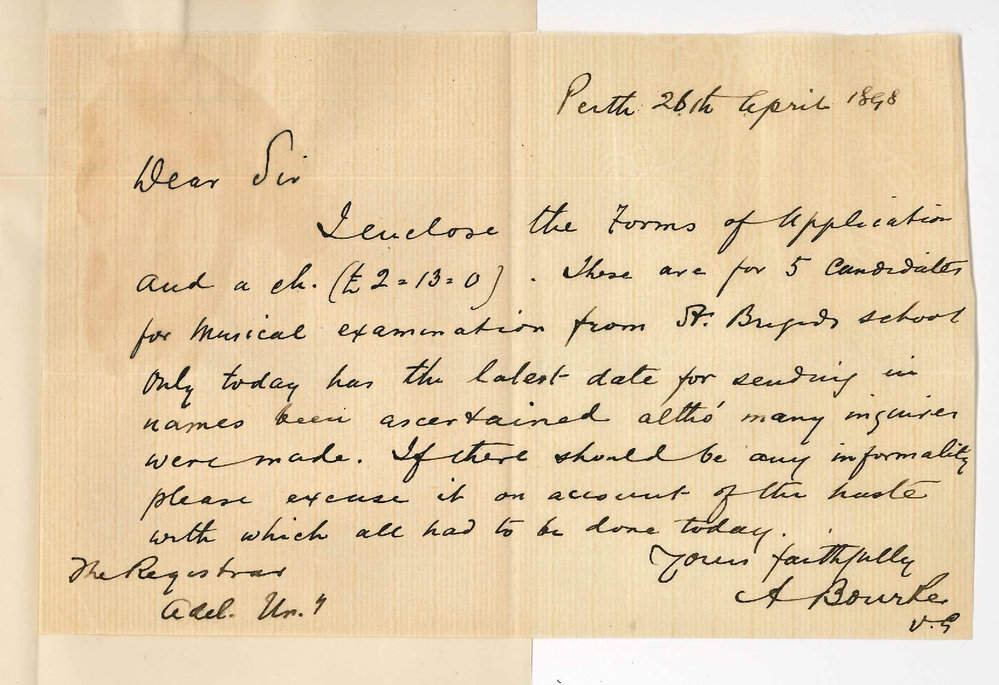 Perth 26th April 1898
Dear Sir
I enclose the Forms of Application
and a ch. (£2=13=0). These are for 5 Candidates
for Musical examination from St. Brigids school
Only today has the latest date for sending in
names been ascertained altho' many inquiries
were made. If there should be any informality
please excuse it on account of the haste
with which all had to be done today.
Yours faithfully
A Bourke
V.G
The Registrar
Adel. Un.y